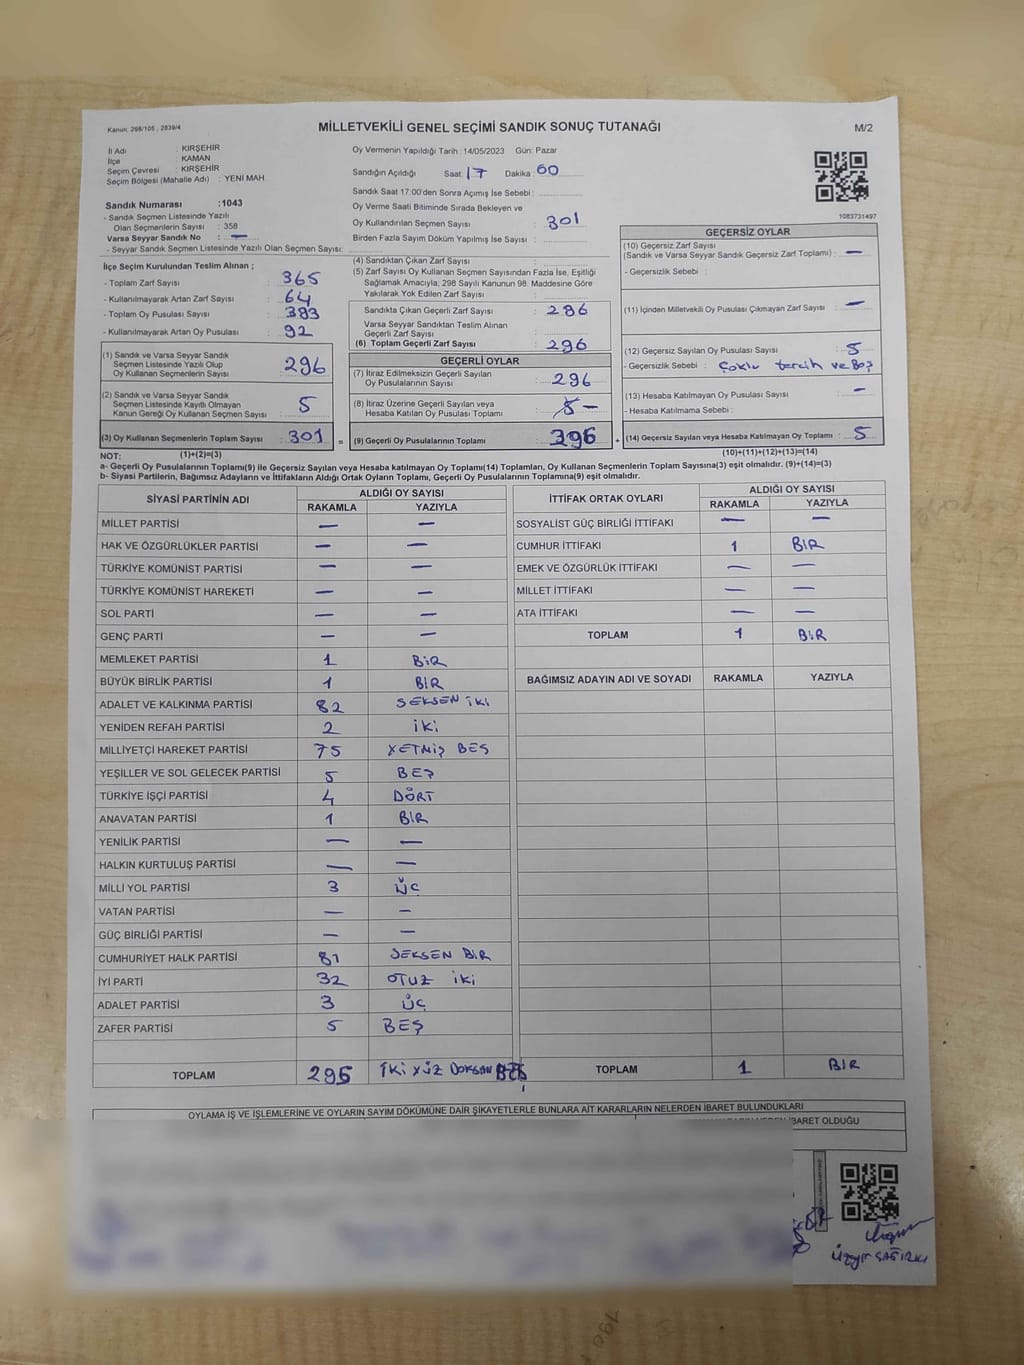 Kanun: 298/105 , 2839/4
MİLLETVEKİLİ GENEL SEÇİMİ SANDIK SONUÇ TUTANAĞI
M/2
İl Adı : KIRŞEHİR
İlçe : KAMAN
Seçim Çevresi : KIRŞEHİR
Seçim Bölgesi (Mahalle Adı) : YENİ MAH
Sandık Numarası :1043
- Sandık Seçmen Listesinde Yazılı
Olan Seçmenlerin Sayısı : 358
Varsa Seyyar Sandık No : —
- Seyyar Sandık Seçmen Listesinde Yazılı Olan Seçmen Sayısı:
Oy Vermenin Yapıldığı Tarih :14/05/2023 Gün: Pazar
Sandığın Açıldığı Saat: 17 Dakika: 60
Sandık Saat 17:00'den Sonra Açımış İse Sebebi :
Oy Verme Saati Bitiminde Sırada Bekleyen ve
Oy Kullandırılan Seçmen Sayısı : 301
Birden Fazla Sayım Döküm Yapılmış İse Sayısı :
1083731497
İlçe Seçim Kurulundan Teslim Alınan ;
- Toplam Zarf Sayısı : 365
- Kullanılmayarak Artan Zarf Sayısı : 64
- Toplam Oy Pusulası : 393
- Kullanılmayarak Artan Oy Pusulası : 92
(1) Sandık ve Varsa Seyyar Sandık
Seçmen Listesinde Yazılı Olup
Oy Kullanan Seçmenlerin Sayısı : 296
(2) Sandık ve Varsa Seyyar Sandık
Seçmen Listesinde Kayıtlı Olmayan
Kanun Gereği Oy Kullanan Seçmen Sayısı : 5
(3) Oy Kullanan Seçmenlerin Toplam Sayısı : 301 =
(4) Sandıktan Çıkan Zarf Sayısı :
(5) Zarf Sayısı Oy Kullanan Seçmen Sayısından Fazla İse, Eşitliği
Sağlamak Amacıyla; 298 Sayılı Kanunun 98. Maddesine Göre
Yakılarak Yok Edilen Zarf Sayısı :
Sandıkta Çıkan Geçerli Zarf Sayısı : 296
Varsa Seyyar Sandıktan Teslim Alınan
Geçerli Zarf Sayısı :
(6) Toplam Geçerli Zarf Sayısı : 296
GEÇERLİ OYLAR
(7) İtiraz Edilmeksizin Geçerli Sayılan
Oy Pusulalarının Sayısı : 296
(8) İtiraz Üzerine Geçerli Sayılan veya
Hesaba Katılan Oy Pusulası Toplamı : —
(9) Geçerli Oy Pusulalarının Toplamı : 296 +
GEÇERSİZ OYLAR
(10) Geçersiz Zarf Sayısı
(Sandık ve Varsa Seyyar Sandık Geçersiz Zarf Toplamı) : —
- Geçersizlik Sebebi :
(11) İçinden Milletvekili Oy Pusulası Çıkmayan Zarf Sayısı : —
(12) Geçersiz Sayılan Oy Pusulası Sayısı : 5
- Geçersizlik Sebebi : Çoklu tercih ve Boş
(13) Hesaba Katılmayan Oy Pusulası Sayısı : —
- Hesaba Katılmama Sebebi :
(14) Geçersiz Sayılan veya Hesaba Katılmayan Oy Toplamı : 5
NOT: (1)+(2)=(3)
(10)+(11)+(12)+(13)=(14)
a- Geçerli Oy Pusulalarının Toplamı(9) ile Geçersiz Sayılan veya Hesaba katılmayan Oy Toplamı(14) Toplamları, Oy Kullanan Seçmenlerin Toplam Sayısına(3) eşit olmalıdır. (9)+(14)=(3)
b- Siyasi Partilerin, Bağımsız Adayların ve İttifakların Aldığı Ortak Oyların Toplamı, Geçerli Oy Pusulalarının Toplamına(9) eşit olmalıdır.
SİYASİ PARTİNİN ADI ALDIĞI OY SAYISI
RAKAMLA YAZIYLA
MİLLET PARTİSİ — —
HAK VE ÖZGÜRLÜKLER PARTİSİ — —
TÜRKİYE KOMÜNİST PARTİSİ — —
TÜRKİYE KOMÜNİST HAREKETİ — —
SOL PARTİ — —
GENÇ PARTİ — —
MEMLEKET PARTİSİ 1 BİR
BÜYÜK BİRLİK PARTİSİ 1 BİR
ADALET VE KALKINMA PARTİSİ 82 SEKSEN İKİ
YENİDEN REFAH PARTİSİ 2 İKİ
MİLLİYETÇİ HAREKET PARTİSİ 75 YETMİŞ BEŞ
YEŞİLLER VE SOL GELECEK PARTİSİ 5 BEŞ
TÜRKİYE İŞÇİ PARTİSİ 4 DÖRT
ANAVATAN PARTİSİ 1 BİR
YENİLİK PARTİSİ — —
HALKIN KURTULUŞ PARTİSİ — —
MİLLİ YOL PARTİSİ 3 ÜÇ
VATAN PARTİSİ — —
GÜÇ BİRLİĞİ PARTİSİ — —
CUMHURİYET HALK PARTİSİ 81 SEKSEN BİR
İYİ PARTİ 32 OTUZ İKİ
ADALET PARTİSİ 3 ÜÇ
ZAFER PARTİSİ 5 BEŞ
TOPLAM 295 İKİ YÜZ DOKSAN BEŞ
İTTİFAK ORTAK OYLARI ALDIĞI OY SAYISI
RAKAMLA YAZIYLA
SOSYALİST GÜÇ BİRLİĞİ İTTİFAKI — —
CUMHUR İTTİFAKI 1 BİR
EMEK VE ÖZGÜRLÜK İTTİFAKI — —
MİLLET İTTİFAKI — —
ATA İTTİFAKI — —
TOPLAM 1 BİR
BAĞIMSIZ ADAYIN ADI VE SOYADI RAKAMLA YAZIYLA
TOPLAM 1 BİR
OYLAMA İŞ VE İŞLEMLERİNE VE OYLARIN SAYIM DÖKÜMÜNE DAİR ŞİKAYETLERLE BUNLARA AİT KARARLARIN NELERDEN İBARET BULUNDUKLARI
İBARET OLDUĞU